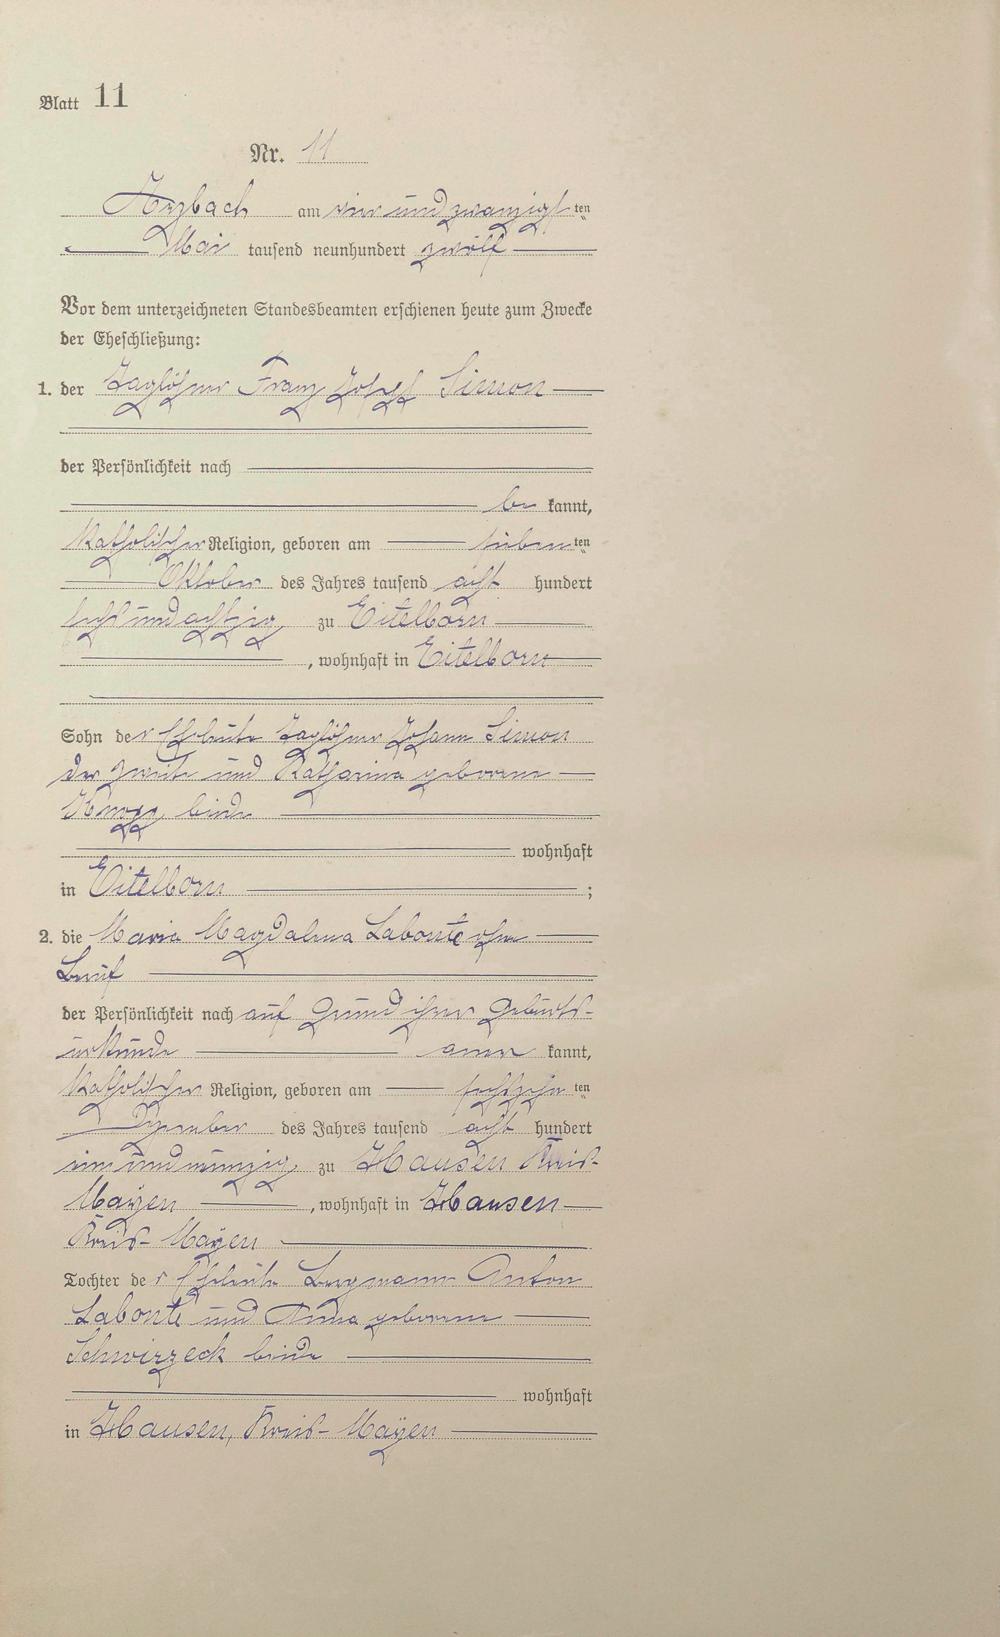 Blatt 11
Nr. 11
Arzbach am vier und zwanzigsten
Mai tausend neunhundert zwölf
Vor dem unterzeichneten Standesbeamten erschienen heute zum Zwecke
der Eheschließung:
1. der Taglöhner Franz Josef Simon
der Persönlichkeit nach
be kannt,
katholischer Religion, geboren am siebenten
Oktober des Jahres tausend acht hundert
sechs und achtzig zu Eitelborn
, wohnhaft in Eitelborn
Sohn der Eheleute Taglöhner Johann Simon
der zweite und Katharina geborene
Knopp beide
wohnhaft
in Eitelborn ;
2. die Maria Magdalena Labonte ohne
Beruf
der Persönlichkeit nach auf Grund ihrer Geburts-
urkunde aner kannt,
katholischer Religion, geboren am sechszehnten
Dezember des Jahres tausend acht hundert
ein und neunzig zu Hausen Kreis-
Mayen , wohnhaft in Hausen
Kreis- Mayen
Tochter der Eheleute Bergmann Anton
Labonté und Anna geborene
Schwirzeck beide
wohnhaft
in Hausen, Kreis- Mayen